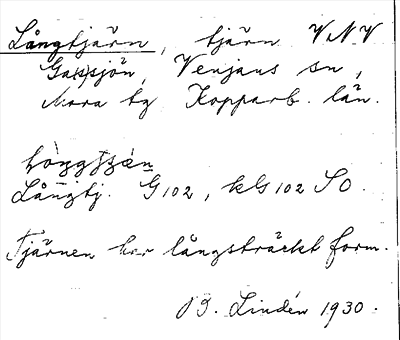 Långtjärn, tjärn V N V
Gassjön, Venjans sn,
Mora tg Kopparb. län.
Långtj. G 102, kG 102 SO.
Tjärnen har långsträckt form.
B. Lindén 1930.